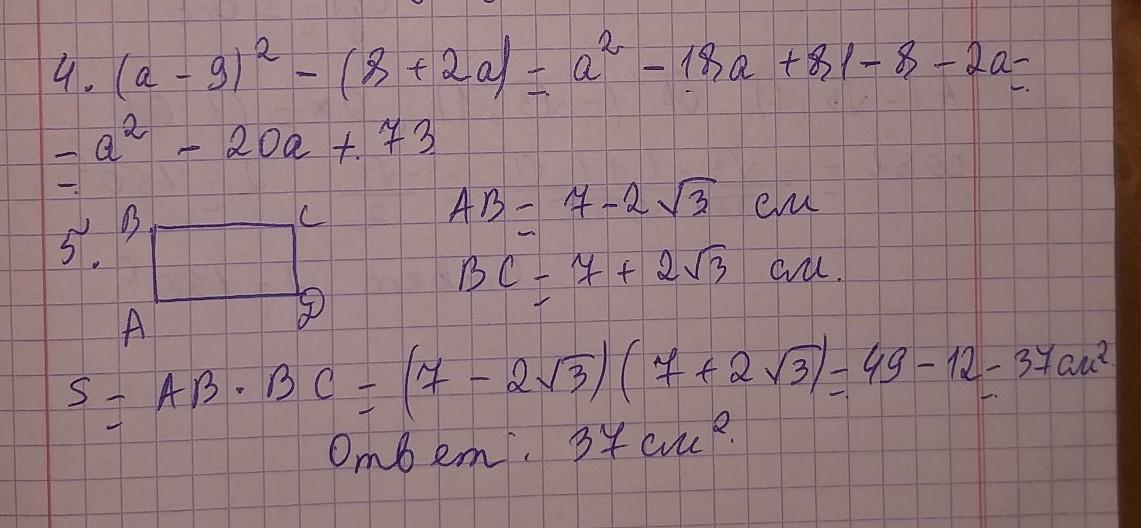 4. (a - 9)² - (8 + 2a) = a² - 18a + 81 - 8 - 2a =
= a² - 20a + 73
B C AB = 7 - 2√3 см
5.
BC = 7 + 2√3 см.
A D
S = AB · BC = (7 - 2√3)(7 + 2√3) = 49 - 12 = 37 см²
Ответ: 37 см².